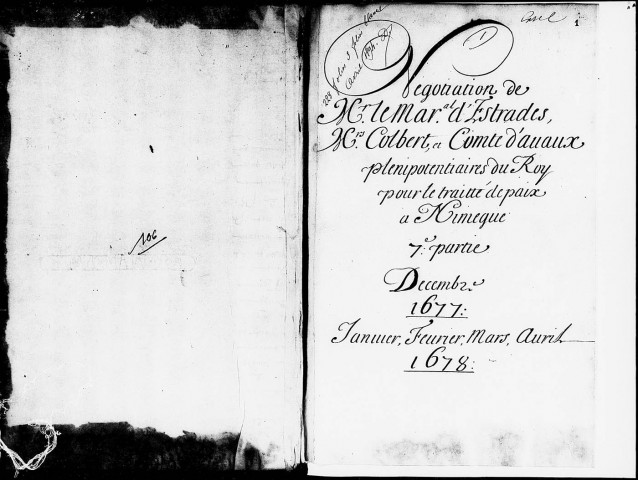 106
1
1
Negotiation de
Mr. le Mar.al d'Estrades,
Mrs Colbert, et Comte d'auaux
plenipotentiaires du Roy
pour le traitté de paix
a Nimegue
7.e partie
Decembre
1677.
Ianuier, Feurier, Mars, Auril
1678.